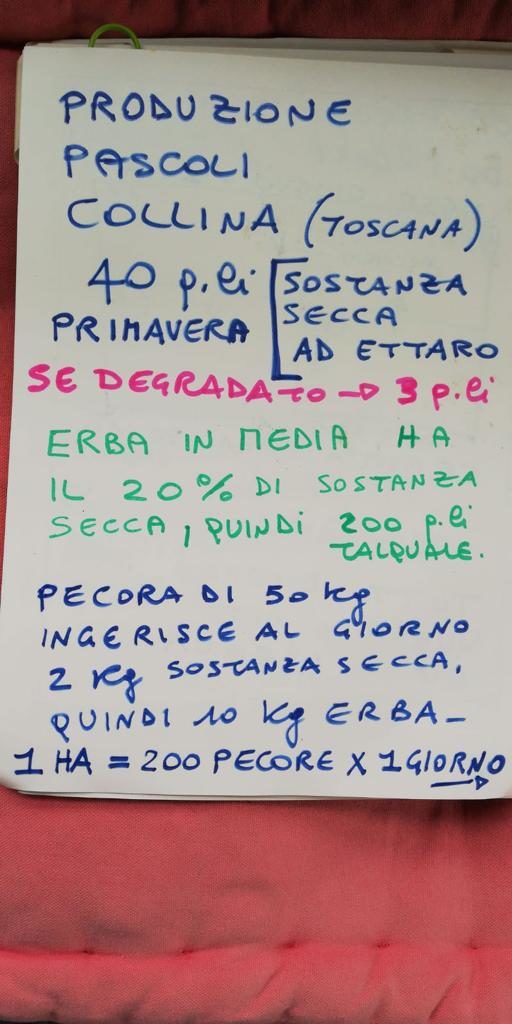 PRODUZIONE
PASCOLI
COLLINA (TOSCANA)
40 p.li [SOSTANZA
PRIMAVERA SECCA
AD ETTARO
SE DEGRADATO → 3 p.li
ERBA IN MEDIA HA
IL 20% DI SOSTANZA
SECCA, QUINDI 200 p.li
TALQUALE.
PECORA DI 50 kg
INGERISCE AL GIORNO
2 kg SOSTANZA SECCA,
QUINDI 10 kg ERBA_
1 HA = 200 PECORE X 1 GIORNO
→